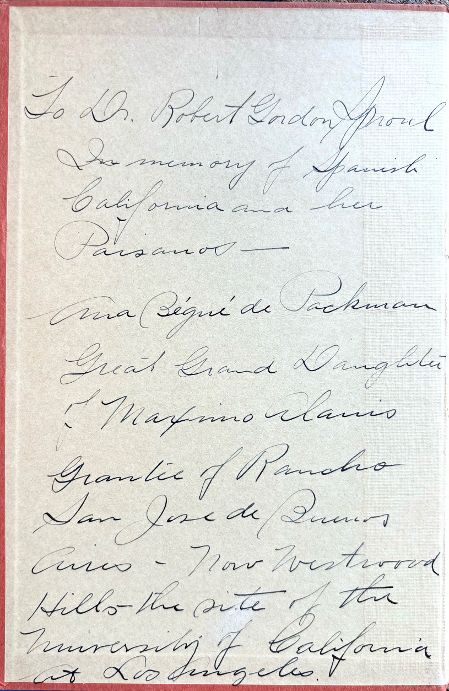 To Dr. Robert Gordon Sproul
In memory of Spanish
California and her
Paisanos —
Ana Bégué de Packman
Great Grand Daughter
of Maximo Alanis
Grantee of Rancho
San Jose de Buenos
Aires - Now Westwood
Hills - the site of the
University of California
at Los Angeles.